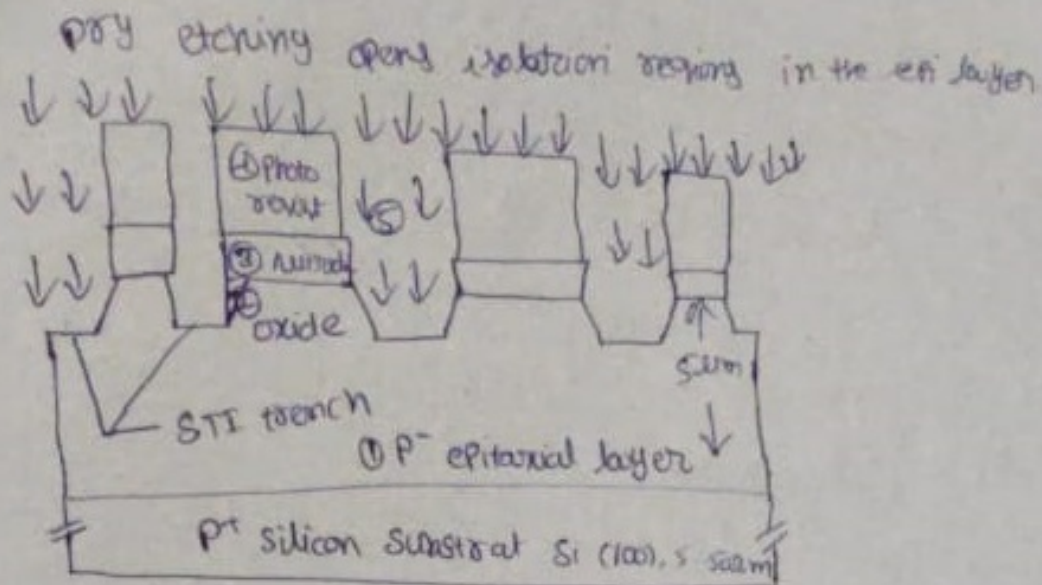 Dry etching opens isolation regions in the epi layer
④ Photo
resist
⑤
③
②
oxide
STI trench
① P⁻ epitaxial layer
P⁺ silicon
Si (100),